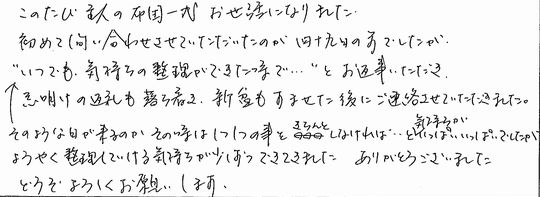 このたび 主人の布団一式 お世話になりました.
初めて伺い合わせさせていただいたのが 四十九日の前でしたが
"いつでも、気持ちの整理ができた時で…" と お返事いただき.
忌明けの返礼も落ち着き、新盆もすませた後にご連絡させていただきました。
そのような日が来るのか その時は1つ1つの事を きちんとしなければ…と 気持ちが いっぱいいっぱいでしたが
ようやく整理していける気持ちが少しずつできてきました ありがとうございました
どうぞよろしくお願いします.